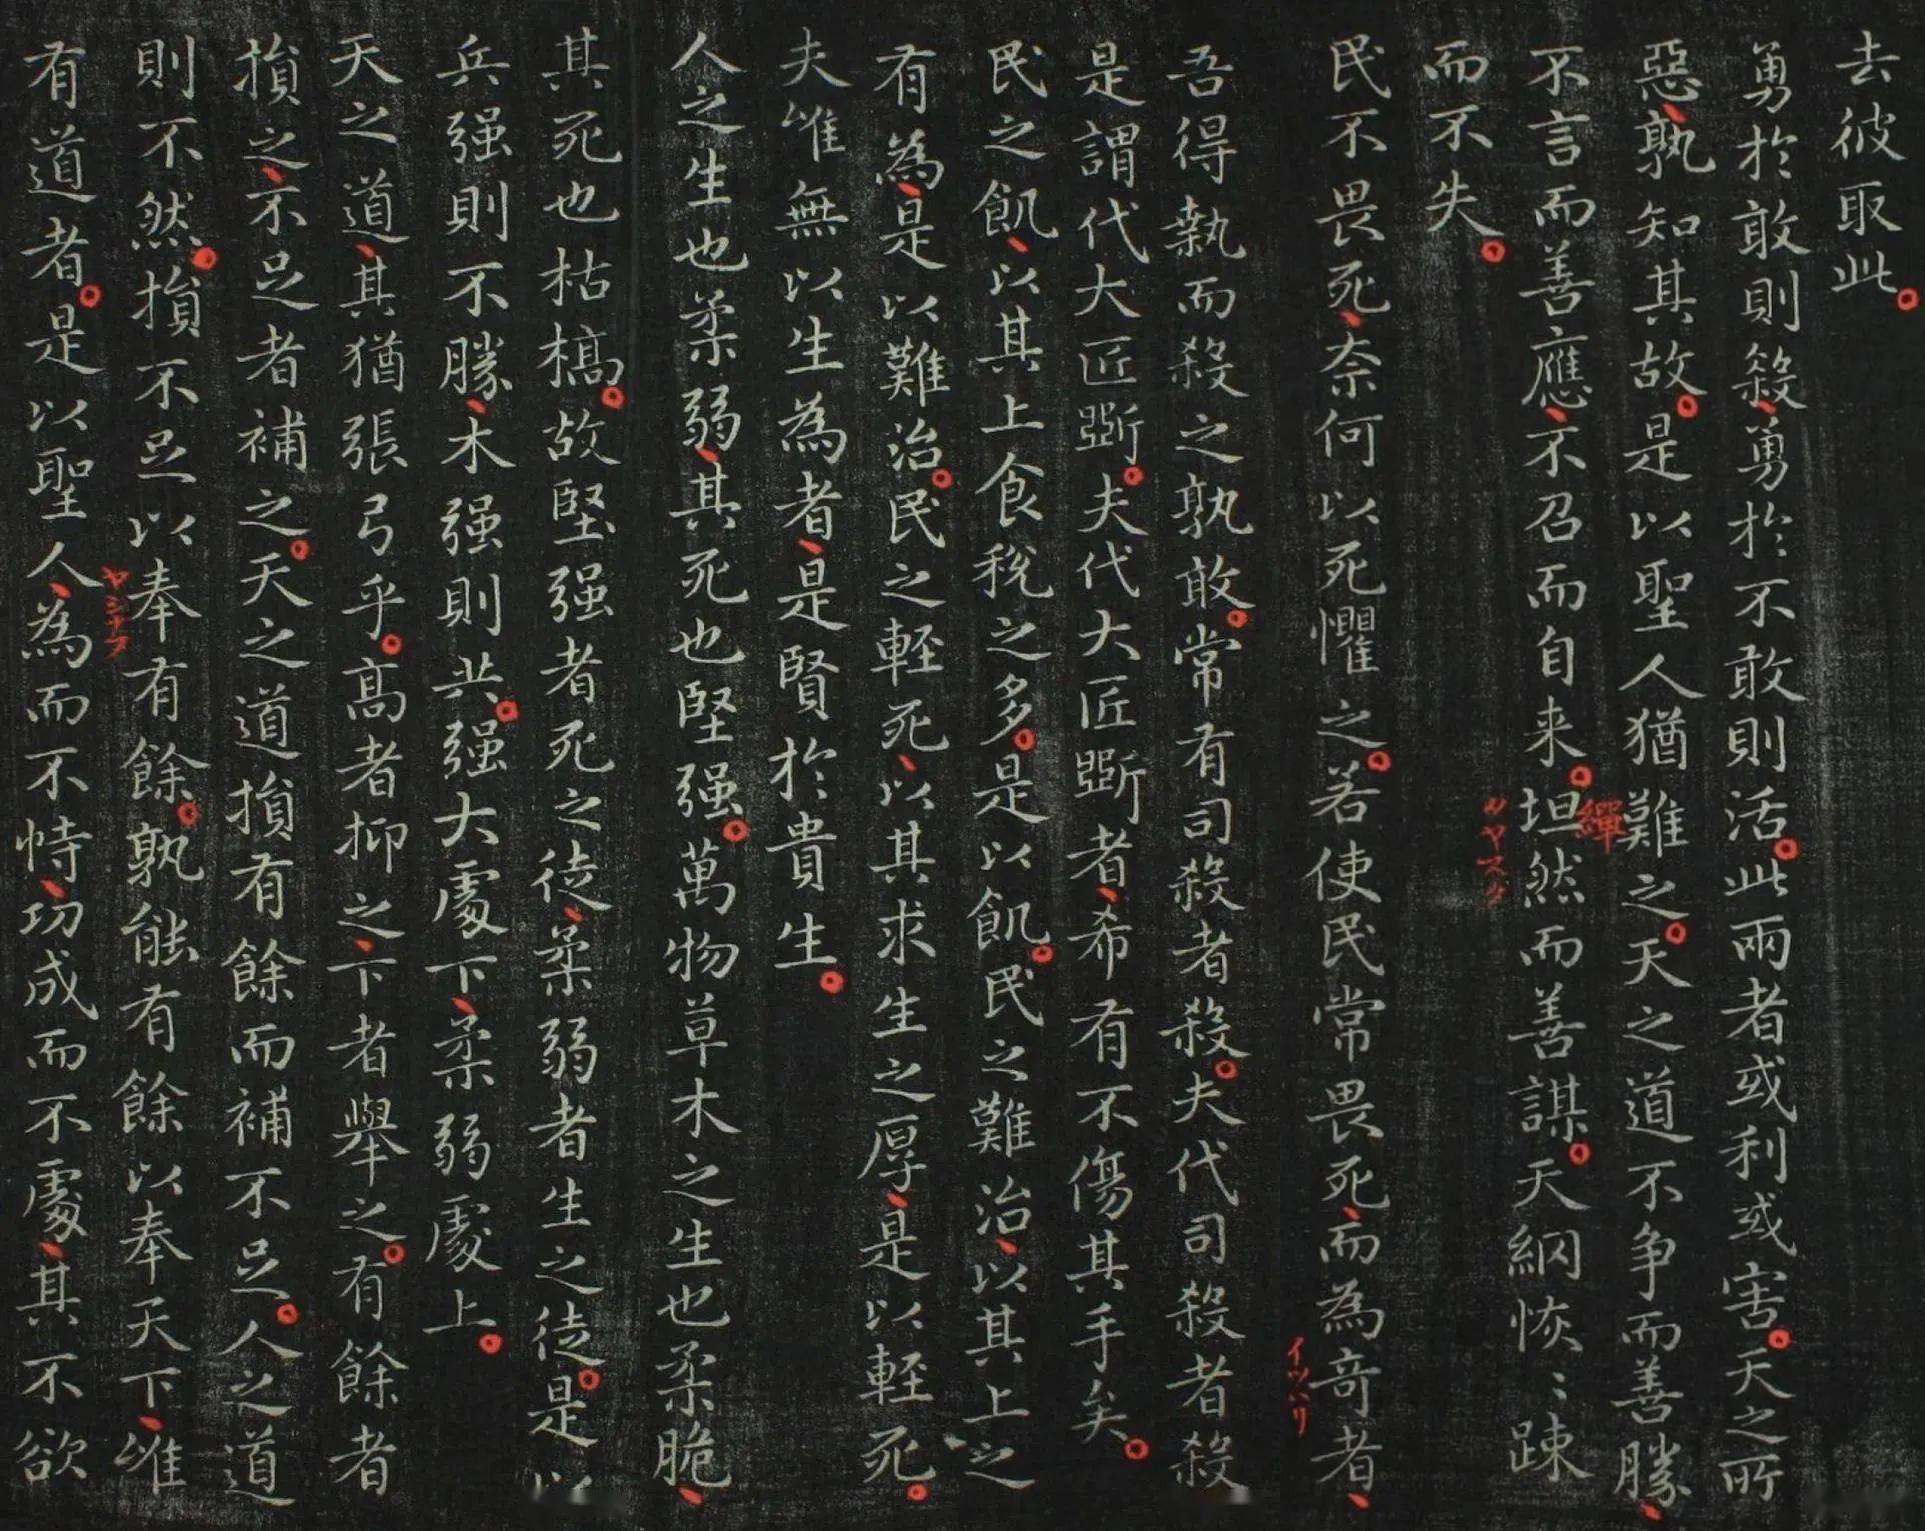 去彼取此。
勇於敢則殺、勇於不敢則活。此兩者或利或害。天之所
惡、孰知其故。是以聖人猶難之。天之道不争而善勝、
不言而善應、不召而自来。坦然而善謀。天網恢〻踈
繟
而不失。
民不畏死、奈何以死懼之。若使民常畏死、而為奇者、
イツハリ
吾得執而殺之孰敢。常有司殺者殺。夫代司殺者殺
是謂代大匠斲。夫代大匠斲者、希有不傷其手矣。
民之飢、以其上食稅之多。是以飢。民之難治、以其上之
有為、是以難治。民之輕死、以其求生之厚、是以輕死。
夫唯無以生為者、是賢於貴生。
人之生也柔弱、其死也堅强。萬物草木之生也柔脆、
其死也枯槁。故堅强者死之徒、柔弱者生之徒。是以
兵强則不勝、木强則共。强大處下、柔弱處上。
天之道、其猶張弓乎。高者抑之、下者舉之。有餘者
損之、不足者補之。天之道損有餘而補不足。人之道
則不然。損不足以奉有餘。孰能有餘以奉天下、唯
有道者。是以聖人、為而不恃、功成而不處、其不欲